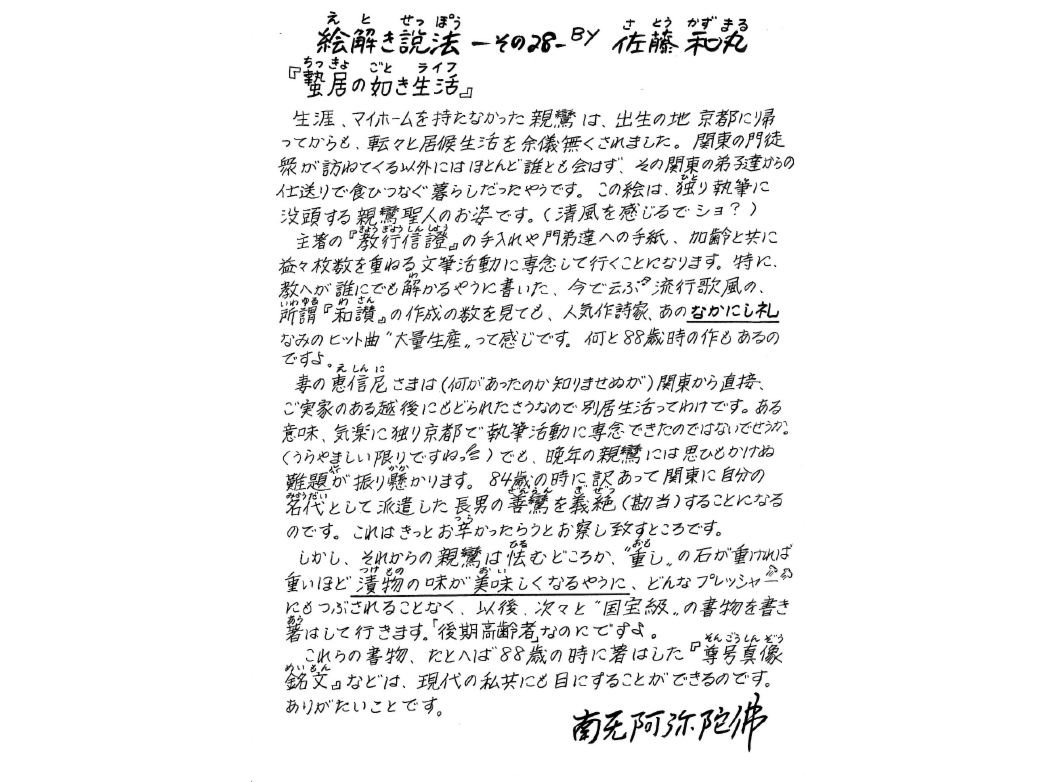 絵解き説法 ーその28ー BY 佐藤 和丸
『蟄居の如き生活』
生涯、マイホームを持たなかった親鸞は、出生の地 京都に帰
ってからも、転々と居候生活を余儀無くされました。関東の門徒
衆が訪ねてくる以外にはほとんど誰とも会はず、その関東の弟子達からの
仕送りで食ひつなぐ暮らしだったやうです。この絵は、独り執筆に
没頭する親鸞聖人のお姿です。(清風を感じるでショ?)
主著の『教行信證』の手入れや門弟達への手紙、加齢と共に
益々枚数を重ねる文筆活動に専念して行くことになります。特に、
教へが誰にでも解かるやうに書いた、今で云ふ流行歌風の、
所謂『和讃』の作成の数を見ても、人気作詩家、あのなかにし礼
なみのヒット曲“大量生産”って感じです。何と88歳時の作もあるの
ですよ。
妻の恵信尼さまは(何があったのか知りませぬが)関東から直接、
ご実家のある越後にもどられたさうなので別居生活ってわけです。ある
意味、気楽に独り京都で執筆活動に専念できたのではないでせうか。
(うらやましい限りですねっ)でも、晩年の親鸞には思ひもかけぬ
難題が振り懸かります。84歳の時に訳あって関東に自分の
名代として派遣した長男の善鸞を義絶(勘当)することになる
のです。これはきっとお辛かったらうとお察し致すところです。
しかし、それからの親鸞は怯むどころか、“重し”の石が重ければ
重いほど漬物の味が美味しくなるやうに、どんなプレッシャー
にもつぶされることなく、以後、次々と“国宝級”の書物を書き
著はして行きます。「後期高齢者」なのにですよ。
これらの書物、たとへば88歳の時に著はした『尊号真像
銘文』などは、現代の私共にも目にすることができるのです。
ありがたいことです。
南无阿弥陀佛